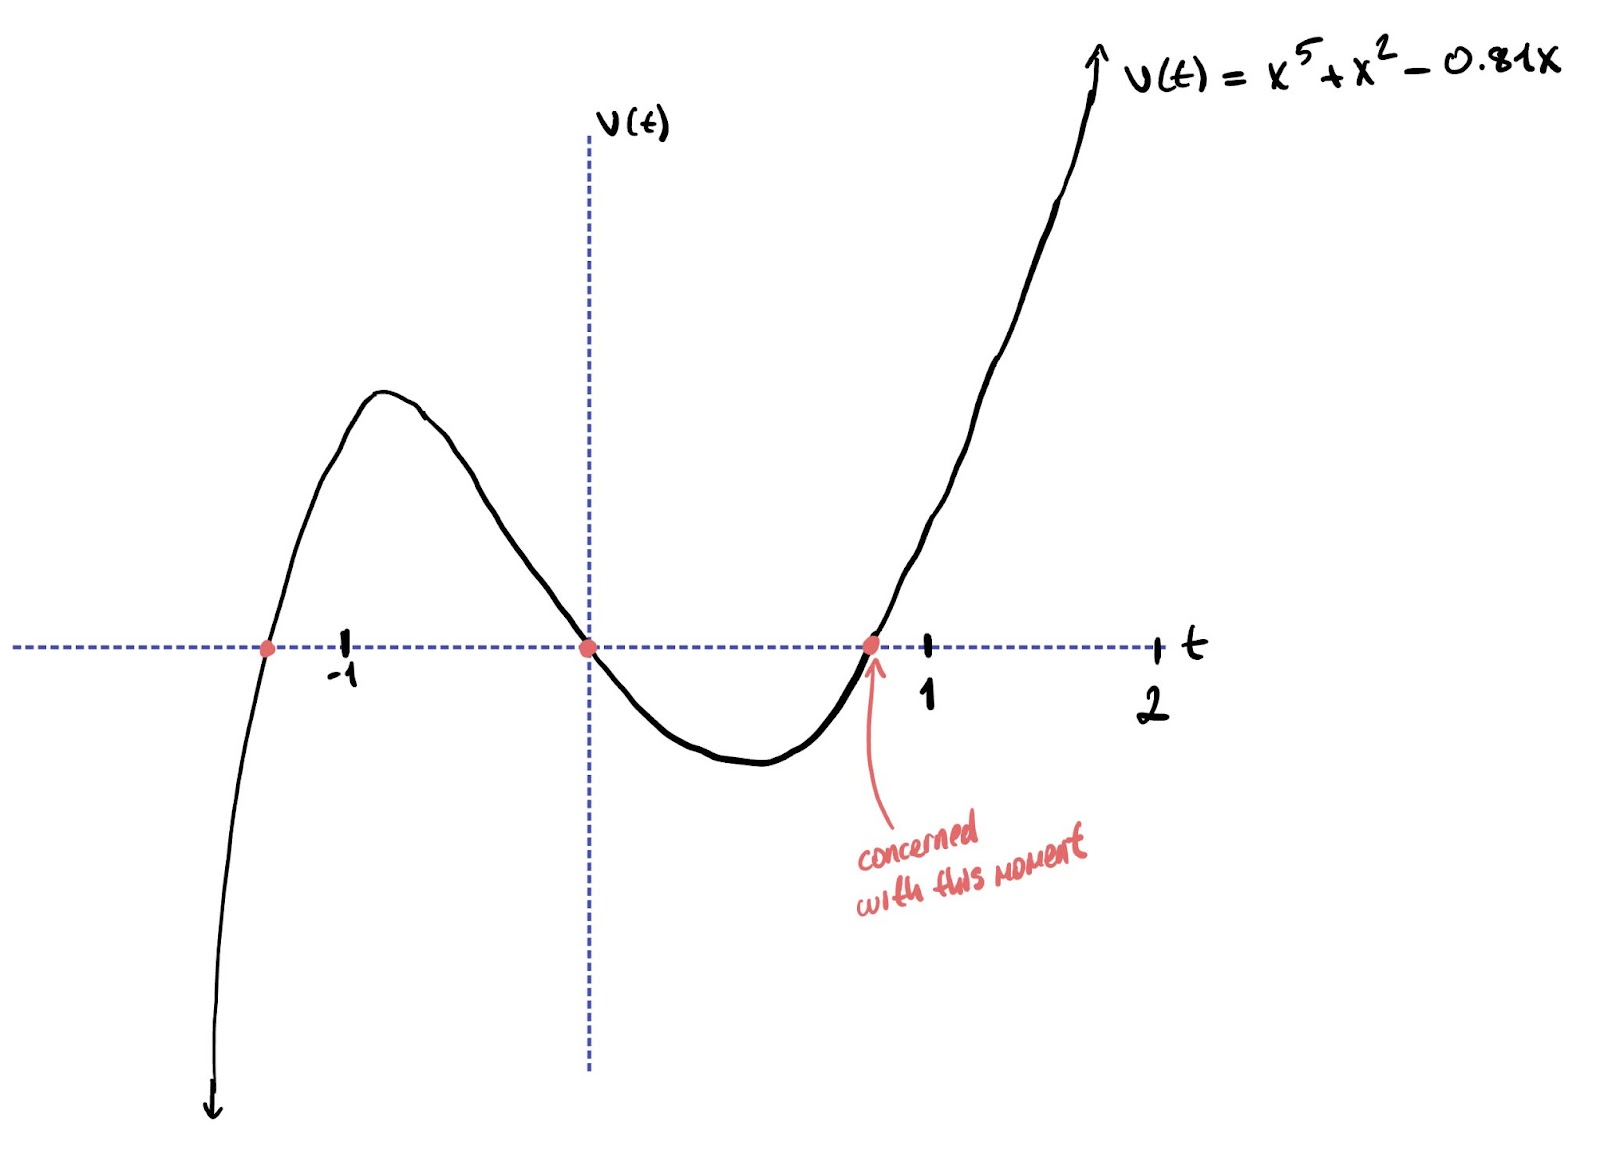 v(t) = x⁵ + x² - 0.81x
v(t)
t
-1
1
2
concerned
with this moment